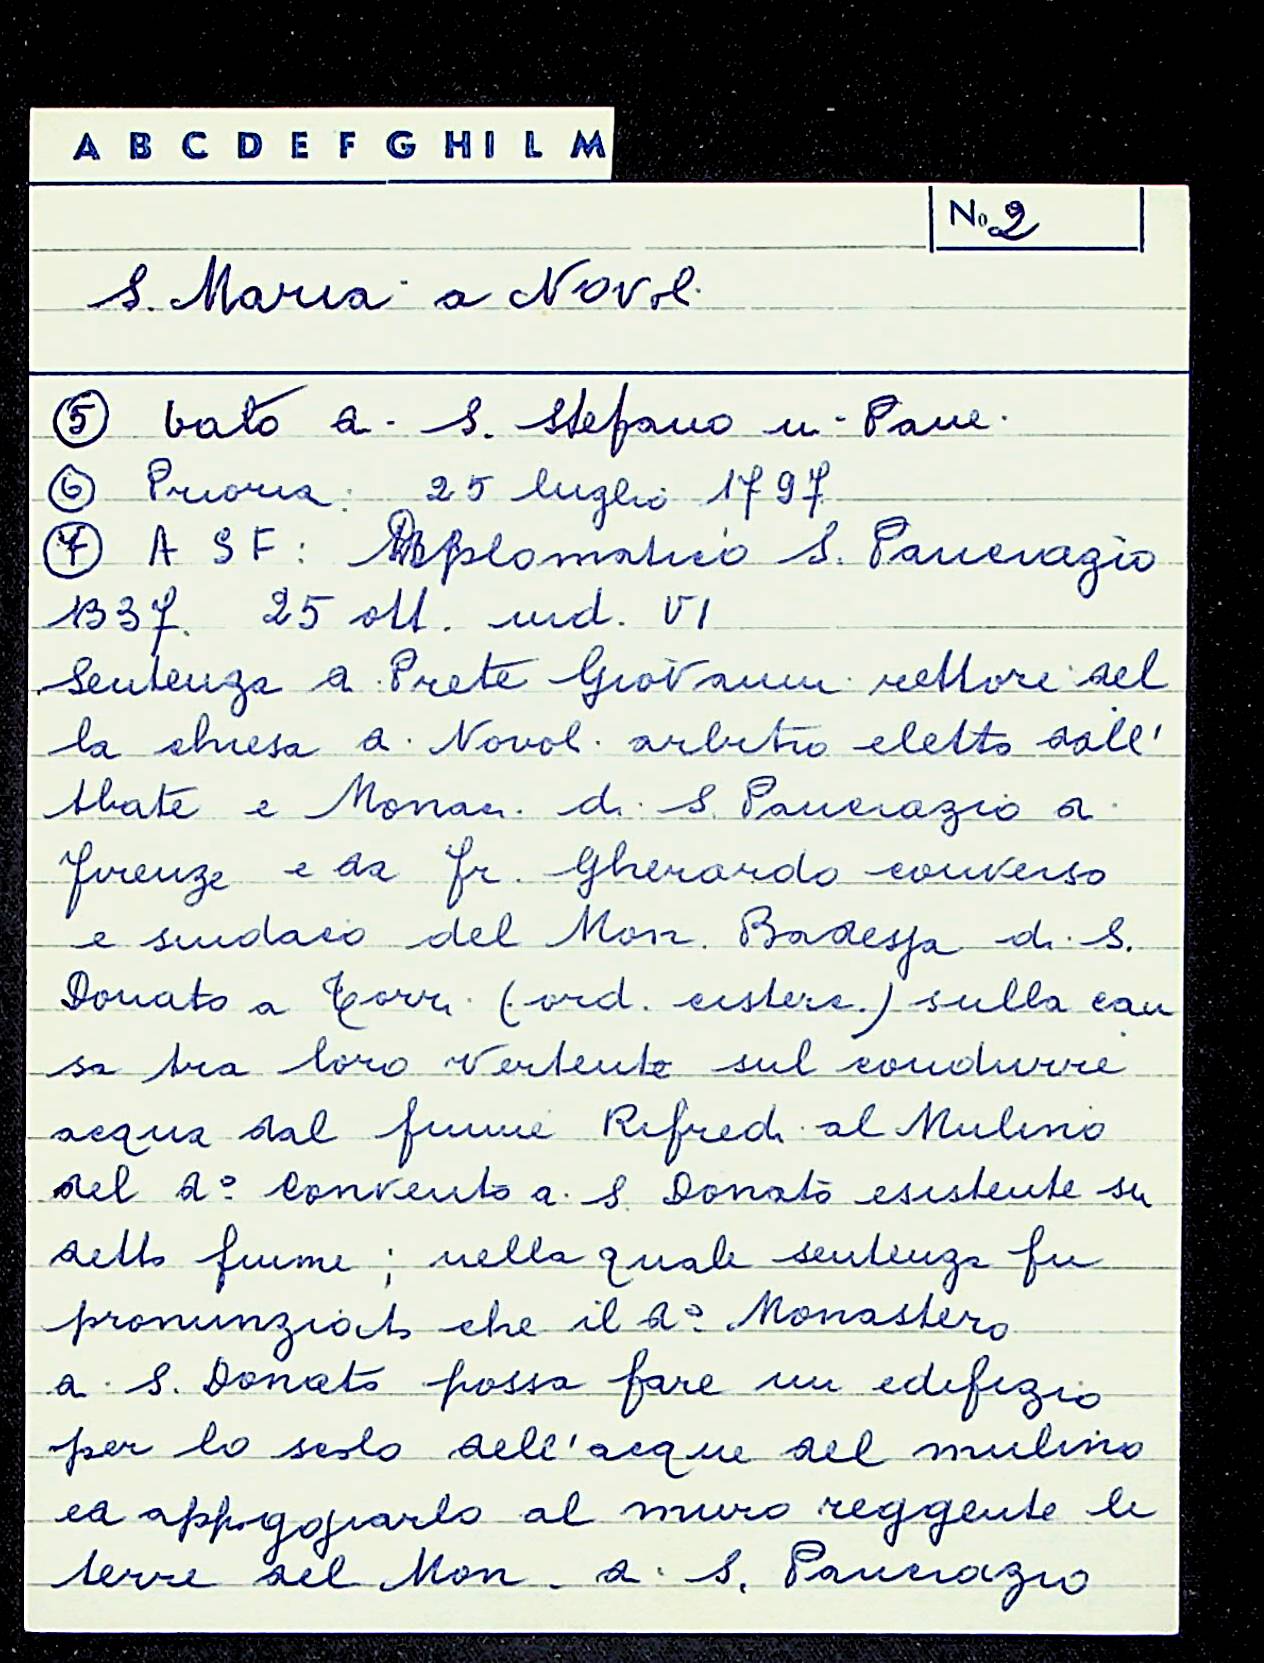 A B C D E F G H I L M
No 2
S. Maria a Novol.
⑤ bato a. S. Stefano in Pane.
⑥ Prioria: 25 luglio 1797
⑦ A S F: Diplomatico S. Pancrazio
1337. 25 ott. ind. VI
Sentenza d. Prete Giovanni rettore del
la chiesa d. Novol. arbitro eletto dall'
Abate e Monaci di S. Pancrazio d.
Firenze e da fr. Gherardo converso
e sindaco del Mon. Badessa di S.
Donato a Torri (ord. cisterc.) sulla cau
sa tra loro vertente sul condurre
acqua dal fiume Rifredi al Mulino
del d.º Convento d. S. Donato esistente su
detto fiume; nella quale sentenza fu
pronunziato che il d.º Monastero
d. S. Donato possa fare un edifizio
per lo scolo dell'acque del mulino
ed appoggiarlo al muro reggente le
terre del Mon. d. S. Pancrazio